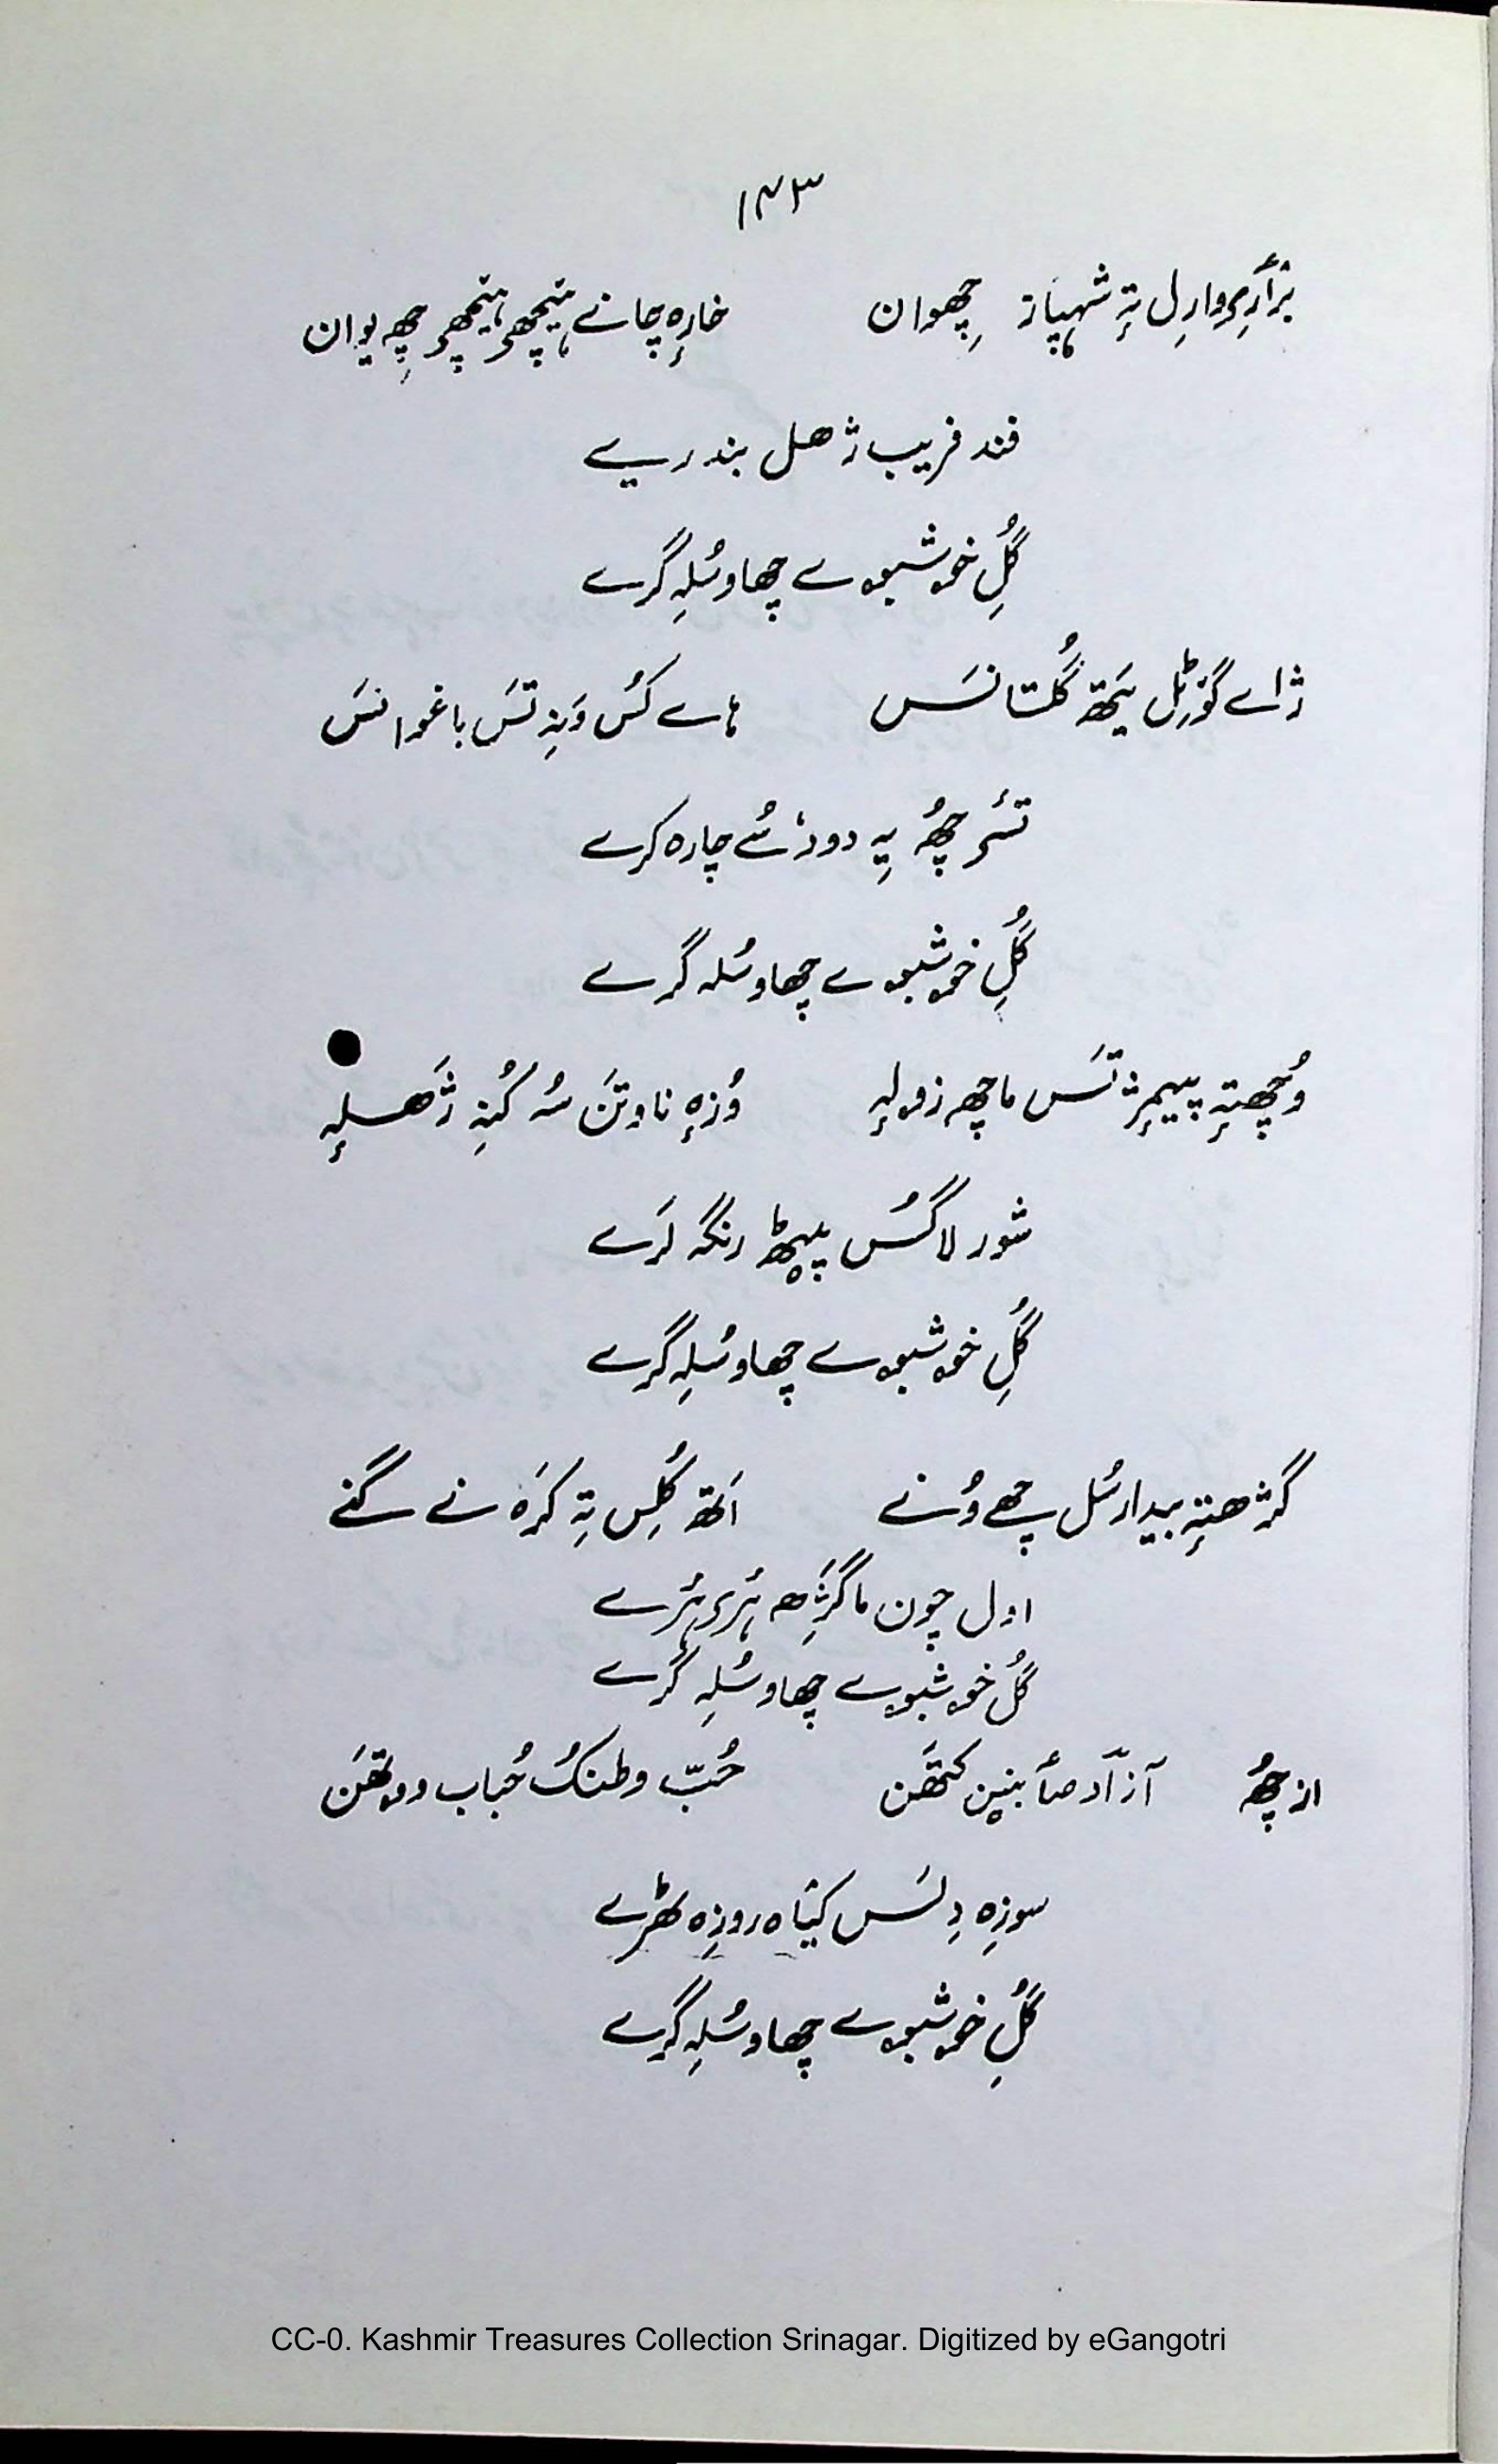 ۱۴۳
برٛأرِی وارِل تہٕ شہباز چھِوان خارٕہ چانے ہیٚچھی ہیٚچھی چھِہ یوان
فند فریب ژھل بندریے
گُلِ خوشبوے چھاو سُلہِ گرے
ژاے گوٚرٹِل یَتھ گُلستانَس ہاے کُس وَنہِ تَس باغوانَس
تسٔی چھُہ یہِ دود سُے چارہ کرے
گُلِ خوشبوے چھاو سُلہ گرے
وُچھتہٕ پیمٕژ تَس ماچھ زولہٕ وُزہٕ ناوتَن سُہ کُنہِ ژَھلہٕ
شور لاگُس پیٹھ رنگہ لَرے
گُلِ خوشبوے چھاو سُلہِ گرے
گژھتہٕ بیدار سُل چھے وُنے اَتھ گُلِس تہِ کرَہ نے گنے
اول چون ما گژِھ ہُری ہُرے
گُل خوشبوے چھاو سُلہِ گرے
از چھُہ آزاد صأبنین کتھَن حُبّ وطنکُ حُباب ووتھَن
سوزِہ دِلَس کیٛاہ روزِہ ٹھرے
گُلِ خوشبوے چھاو سُلہِ گرے
CC-0. Kashmir Treasures Collection Srinagar. Digitized by eGangotri